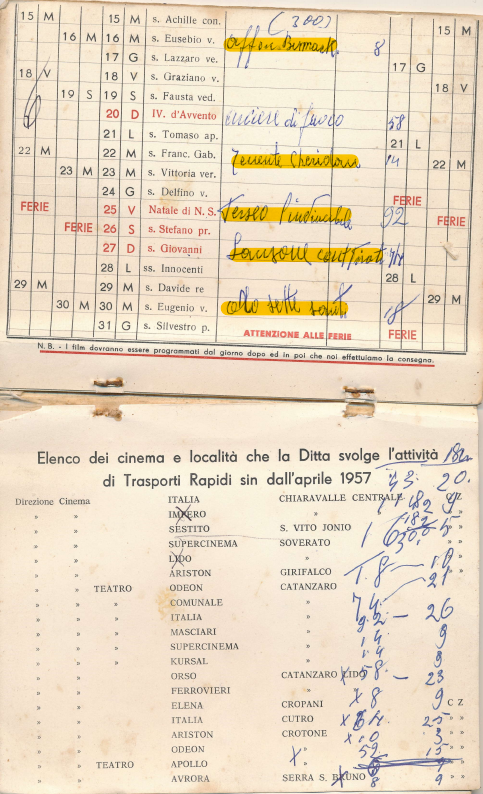 (300)
15 M 15 M s. Achille con. 15 M
16 M 16 M s. Eusebio v. affon. Bismack. 8
17 G s. Lazzaro ve. 17 G
18 V 18 V s. Graziano v. 18 V
19 S 19 S s. Fausta ved.
20 D IV. d'Avvento di fuoco 58
21 L s. Tomaso ap. 21 L
22 M 22 M s. Franc. Gab. Tenente 14 22 M
23 M 23 M s. Vittoria ver. 23 M
24 G s. Delfino v.
FERIE 25 V Natale di N. S. Perseo l'invincibile 92 FERIE FERIE
FERIE 26 S s. Stefano pr.
27 D s. Giovanni Sansone contro i pirati
28 L ss. Innocenti 28 L
29 M 29 M s. Davide re 29 M
30 M 30 M s. Eugenio v. sette 18
31 G s. Silvestro p. ATTENZIONE ALLE FERIE FERIE
N. B. - I film dovranno essere programmati dal giorno dopo ed in poi che noi effettuiamo la consegna.
Elenco dei cinema e località che la Ditta svolge l'attività
di Trasporti Rapidi sin dall'aprile 1957 20.
Direzione Cinema ITALIA CHIARAVALLE CENTRALE CZ
» » IMPERO » 182 9 » »
» » SESTITO S. VITO JONIO 182 » »
» » SUPERCINEMA SOVERATO 300 5 » »
» » LIDO » » »
» » ARISTON GIRIFALCO
» TEATRO ODEON CATANZARO 21
» » » COMUNALE » 74
» » » ITALIA » 92 - 26
» » » MASCIARI » 14 9
» » » SUPERCINEMA » 14 9
» » » KURSAL »
» » ORSO CATANZARO LIDO x 58 - 23
» » FERROVIERI »
» » ELENA CROPANI x 8 9 C Z
» » ITALIA CUTRO x 64 25 » »
» » ARISTON CROTONE x 10 3 » »
» » ODEON x » 52 15 » »
» TEATRO APOLLO » » »
» » AVRORA SERRA S. BRUNO 8 9 » »